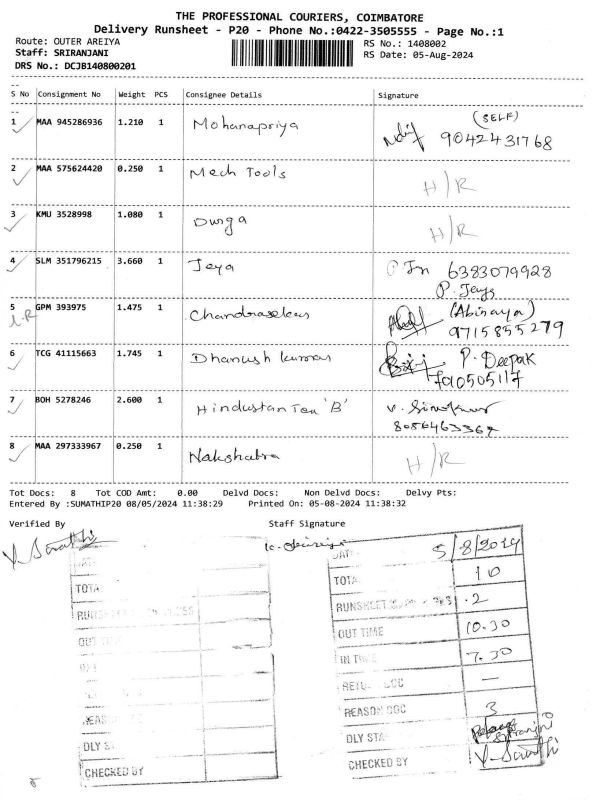 THE PROFESSIONAL COURIERS, COIMBATORE
Delivery Runsheet - P20 - Phone No.:0422-3505555 - Page No.:1
Route: OUTER AREIYA
RS No.: 1408002
Staff: SRIRANJANI
RS Date: 05-Aug-2024
DRS No.: DCJB140800201
S No Consignment No Weight PCS Consignee Details Signature
1 MAA 945286936 1.210 1 Mohanapriya (SELF) 9042431768
2 MAA 575624420 0.250 1 Mech Tools H/R
3 KMU 3528998 1.080 1 Durga H/R
4 SLM 351796215 3.660 1 Jeya 6383079928
P. Jeya
5 GPM 393975 1.475 1 Chandrasekar (Abinaya)
9715855279
6 TCG 41115663 1.745 1 Dhanush Kumar P. Deepak
7 BOH 5278246 2.600 1 Hindustan Tea 'B'
8 MAA 297333967 0.250 1 Nakshatra H/R
Tot Docs: 8 Tot COD Amt: 0.00 Delvd Docs: Non Delvd Docs: Delvy Pts:
Entered By :SUMATHIP20 08/05/2024 11:38:29 Printed On: 05-08-2024 11:38:32
Verified By Staff Signature
5/8/2024
10
RUNSHEET 2
OUT TIME 10.30
IN TIME 7.30
—
REASON DOC 3
DLY STA
CHECKED BY
TOTA
RUNSHEET
OUT
DLY
CHECKED BY